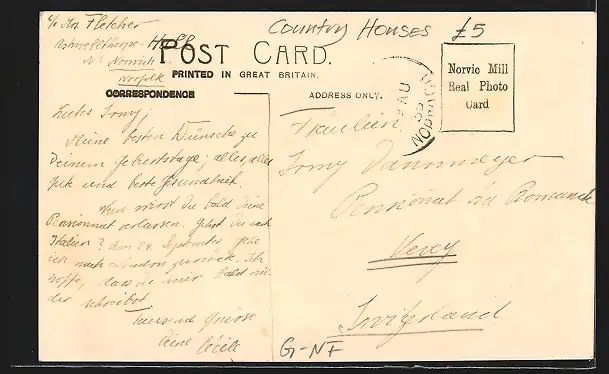 c/o Mrs Fletcher
Ashwellthorpe Hall
Nr Norwich
Norfolk
Country Houses £5
POST CARD.
PRINTED IN GREAT BRITAIN.
CORRESPONDENCE
ADDRESS ONLY.
Norvic Mill
Real Photo
Card
Liebes Irmy,
Meine besten Wünsche zu
Deinem Geburtstage, alles, alles
gute und beste Gesundheit.
Nun wirst du bald deine
Pensionnat verlassen. Gehst du nach
Italien? Am 24. September gehe
ich nach London zurück. Ich
hoffe, dass du mir bald wie-
der schreibst.
Tausend Grüsse
Deine Cécile
Fräulein
Irmy Dannmeyer
Pensionnat La Romande
Vevey
Switzerland
G-NF